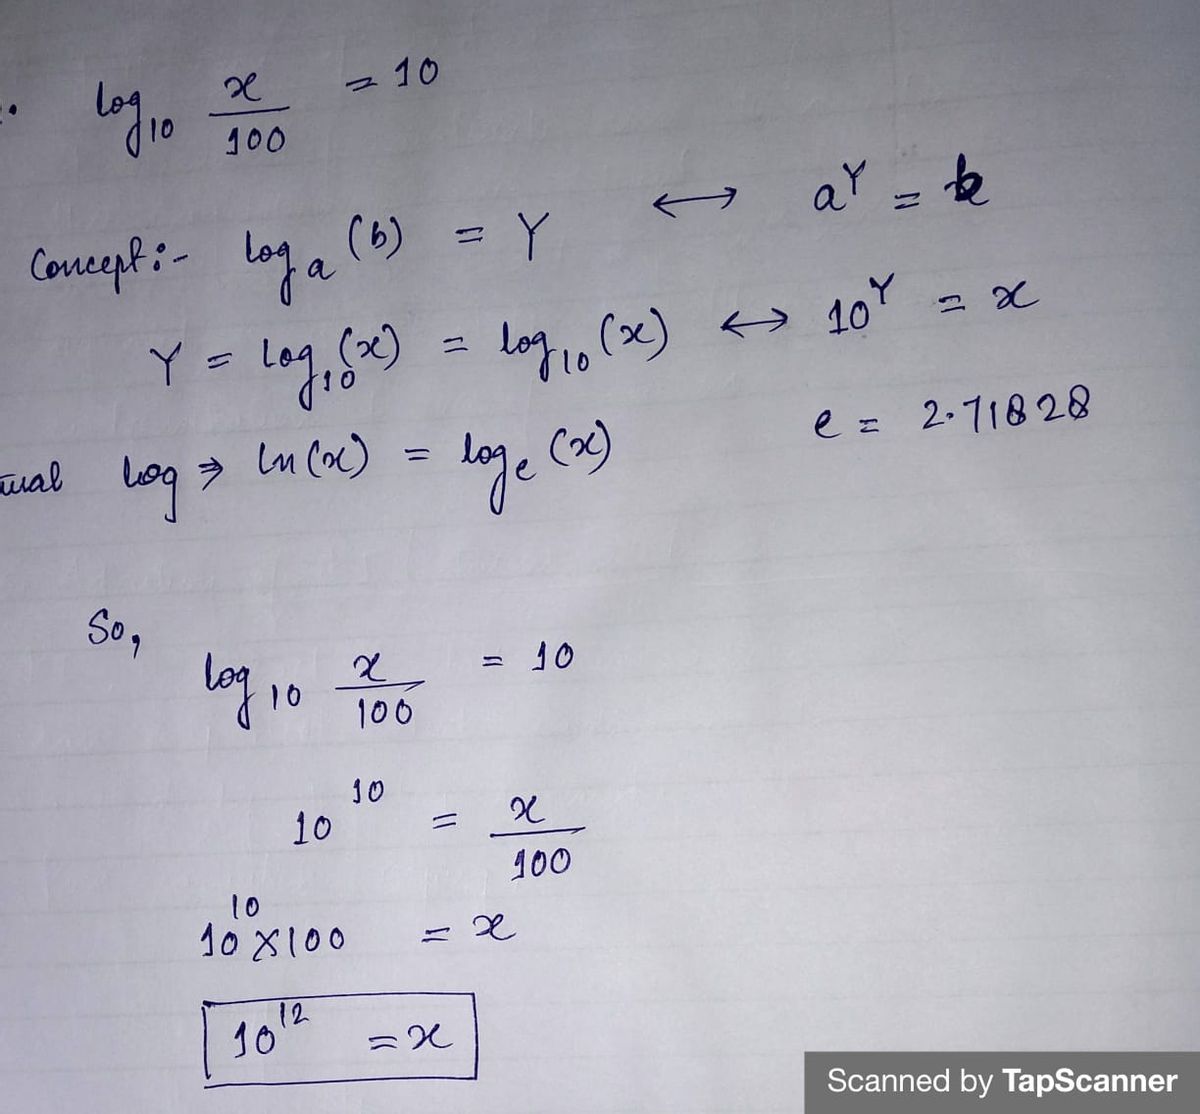 log₁₀ x/100 = 10
Concept:- log a (b) = Y ↔ a^Y = b
Y = log₁₀(x) = log₁₀(x) ↔ 10^Y = x
log ⇒ ln(x) = log e (x) e = 2.71828
So,
log₁₀ x/100 = 10
10^10 = x/100
10^10 × 100 = x
10^12 = x
Scanned by TapScanner